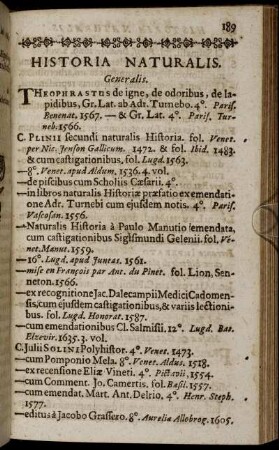 189
HISTORIA NATURALIS.
Generalis.
THEOPHRASTUS de igne, de odoribus, de la-
pidibus, Gr. Lat. ab Adr. Turnebo. 4°. Paris.
Benenat. 1567. — & Gr. Lat. 4°. Paris. Tur-
neb. 1566.
C. PLINII secundi naturalis Historia. fol. Venet.
per Nic. Jenson Gallicum. 1472. & fol. Ibid. 1483.
& cum castigationibus, fol. Lugd. 1563.
— 8°. Venet. apud Aldum, 1536. 4. vol.
— de piscibus cum Scholiis Cæsarii. 4°.
— in libros naturalis Historiæ præfatio ex emendati-
one Adr. Turnebi cum ejusdem notis. 4°. Paris.
Vascosan. 1556.
— Naturalis Historia à Paulo Manutio emendata,
cum castigationibus Sigismundi Gelenii. fol. Ve-
net. Manut. 1559.
— 16°. Lugd. apud Juntas. 1561.
— mise en François par Ant. du Pinet. fol. Lion, Sen-
neton. 1566.
— ex recognitione Jac. Dalecampii Medici Cadomen-
sis, cum ejusdem castigationibus, & variis lectioni-
bus. fol. Lugd. Honorat. 1587.
— cum emendationibus Cl. Salmasii. 12°. Lugd. Bat.
Elzevir. 1635. 3. vol.
C. Julii SOLINI Polyhistor. 4°. Venet. 1473.
— cum Pomponio Mela. 8°. Venet. Aldus. 1518.
— ex recensione Eliæ Vineti. 4°. Pictavii. 1554.
— cum Comment. Jo. Camertis. fol. Basil. 1557.
— cum emendat. Mart. Ant. Delrio. 4°. Henr. Steph.
1577.
— editus à Jacobo Grassero. 8°. Aurelia Allobrog. 1605.